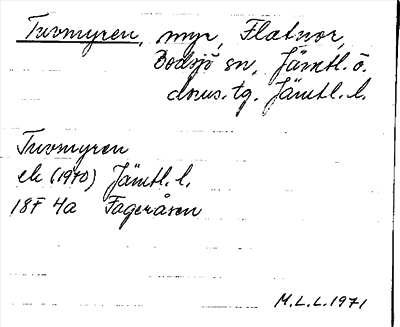 Tuvmyren, myr, Flatnor,
Bodsjö sn, Jämtl. ö.
doms. tg. Jämtl. l.
Tuvmyren
ek (1970) Jämtl. l.
18F 4a Fageråsen
M.L.L. 1971